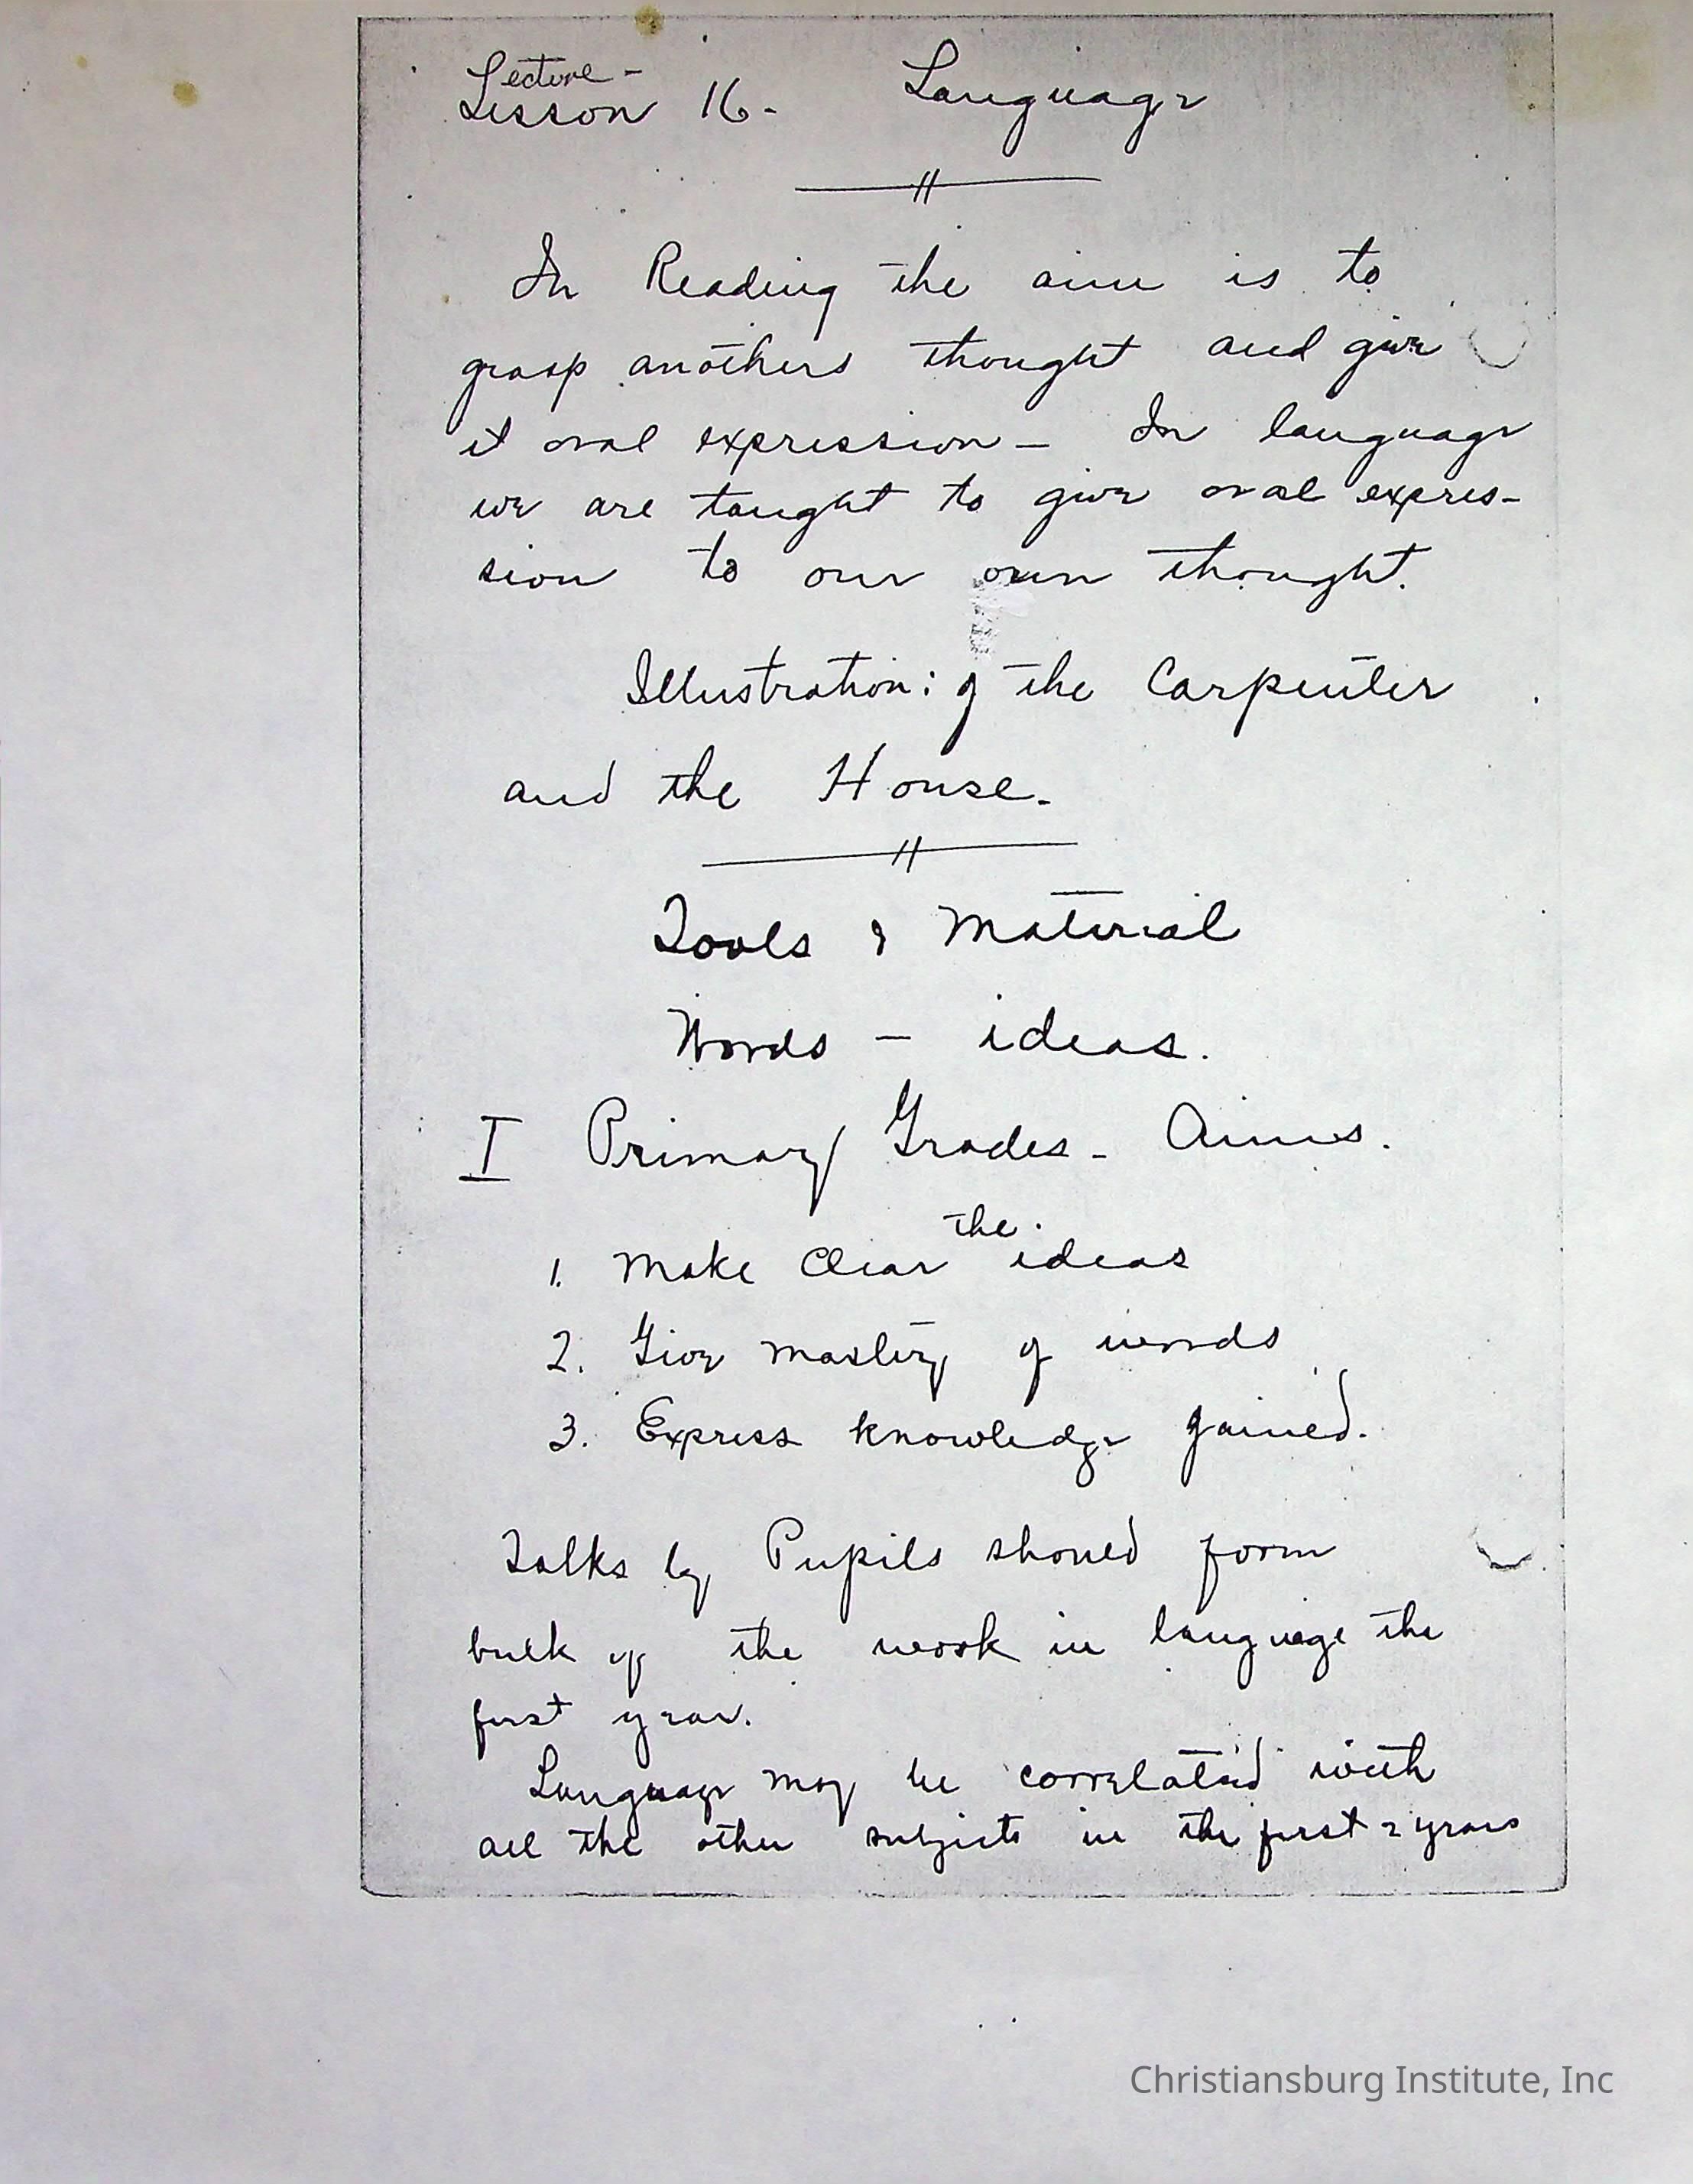 Lecture -
Lesson 16 - Language
In Reading the aim is to
grasp anothers thought and give
it oral expression - In language
we are taught to give oral expres-
sion to our own thought.
Illustration: of the Carpenter
and the House.
Tools & Material
Words - ideas.
I Primary Grades - Aims.
1. Make Clear the ideas
2. Give mastery of words
3. Express knowledge gained.
Talks by Pupils should form
bulk of the work in language the
first year.
Language may be correlated with
all the other subjects in the first 2 years
Christiansburg Institute, Inc